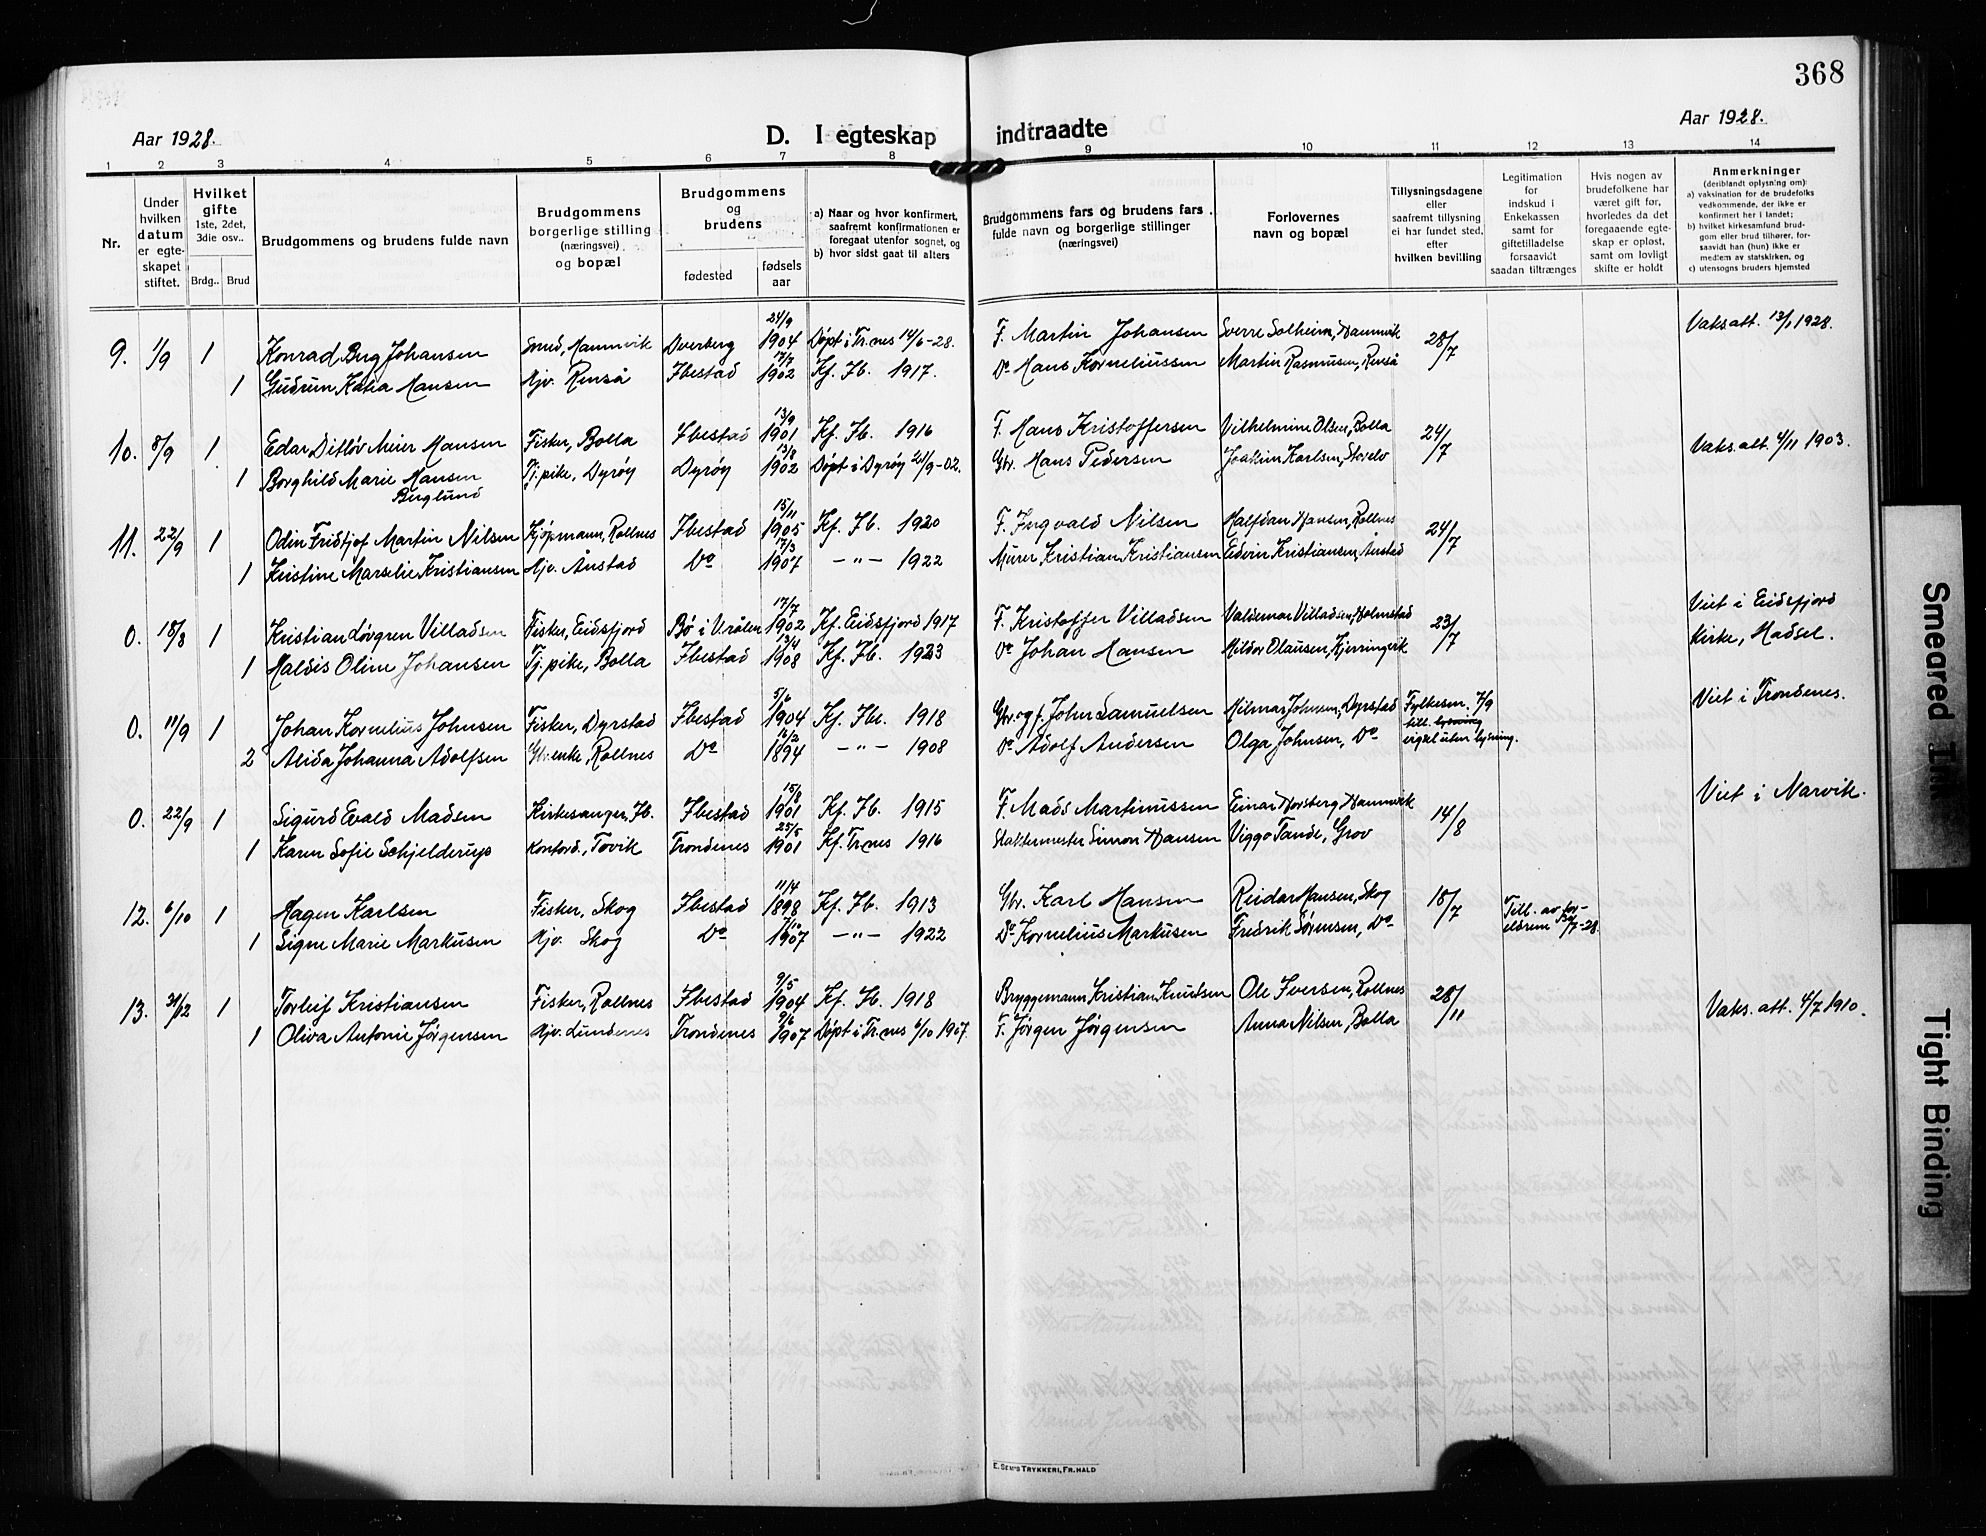 368
Aar 1928.
D. I egteskap indtraadte
Aar 1928.
1 2 3 4 5 6 7 8 9 10 11 12 13 14
Nr.
Under hvilken datum er egte-skapet stiftet.
Hvilket gifte
1ste, 2det, 3die osv..
Brdg.. Brud
Brudgommens og brudens fulde navn
Brudgommens borgerlige stilling (næringsvei) og bopæl
Brudgommens og brudens
fødested
fødsels aar
a) Naar og hvor konfirmert, saafremt konfirmationen er foregaat utenfor sognet, og
b) hvor sidst gaat til alters
Brudgommens fars og brudens fars fulde navn og borgerlige stillinger (næringsvei)
Forlovernes navn og bopæl
Tillysningsdagene eller saafremt tillysning ei har fundet sted, efter hvilken bevilling
Legitimation for indskud i Enkekassen samt for giftetilladelse forsaavidt saadan tiltrænges
Hvis nogen av brudefolkene har været gift før, hvorledes da det foregaaende egte-skap er opløst, samt om lovligt skifte er holdt
Anmerkninger
(deriblandt oplysning om):
a) vaksination for de brudefolks vedkommende, der ikke er konfirmert her i landet;
b) hvilket kirkesamfund brud-gom eller brud tilhører, for-saavidt han (hun) ikke er medlem av statskirken, og
c) utensogns bruders hjemsted
9. 1/9 1 Konrad Berg Johansen Smed, Hamnvik Dverberg 24/9 1904 Døpt i Tr.nes 14/6-28. F. Martin Johansen Sverre Solheim, Hamnvik 28/7 Vaksatt. 13/1 1928.
1 Gudrun Katia Hansen Hjv. Renså Ibestad 17/7 1902 Kf. Ib. 1917. Do Hans Korneliussen Martin Rasmussen, Renså
10. 8/9 1 Edar Ditløv Meier Hansen Fisker, Bolla Ibestad 13/9 1901 Kf. Ib. 1916 F. Hans Kristoffersen Vilhelmine Olsen, Bolla 24/7 Vaks.att. 4/11 1903.
1 Borghild Marie Hansen Berglund Tj.pike, Dyrøy Dyrøy 13/8 1902 Døpt i Dyrøy 21/9-02. Gbr. Hans Pedersen Joakim Karlsen, Storelv
11. 22/9 1 Odin Fridtjof Martin Nilsen Kjøpmann, Rollnes Ibestad 15/11 1905 Kf. Ib. 1920 F. Ingvald Nilsen Halfdan Hansen, Rollnes 24/7
1 Kristine Marselie Kristiansen Hjv. Ånstad Do 17/3 1907 -"- 1922 Murer Kristian Kristiansen Edvin Kristiansen, Ånstad
0. 18/8 1 Kristian Løvgren Villadsen Fisker, Eidsfjord Bø i V.rålen 17/7 1902 Kf. Eidsfjord 1917 F. Kristoffer Villadsen Valdemar Villadsen, Holmstad 23/7 Viet i Eidsfjord Kirke, Hadsel.
1 Haldis Oline Johansen Tj.pike, Bolla Ibestad 13/4 1908 Kf. Ib. 1923 Do Johan Hansen Hildor Olausen, Kjerringvik
0. 11/9 1 Johan Kornelius Johnsen Fisker, Dyrstad Ibestad 5/6 1904 Kf. Ibe. 1918 Gbr. og f. John Samuelsen Hilmar Johnsen, Dyrstad Fylkesm. 7/9 till. lysning vigsel uten lysning. Viet i Trondenes.
2 Alida Johanna Adolfsen Gbr.enke, Rollnes Do 16/2 1894 -"- 1908 Do Adolf Andersen Olga Johnsen, Do
0. 22/9 1 Sigurd Evald Madsen Kirkesanger, Ib. Ibestad 15/8 1901 Kf. Ib. 1915 F. Mads Martinussen Einar Norsberg, Hamnvik 14/8 Viet i Narvik.
1 Karen Sofie Schjelderup Kontord., Tovik Trondenes 25/5 1901 Kf. Tr.nes 1916 Staktermester Simon Hansen Viggo Tande, Grov
12. 6/10 1 Hagen Karlsen Fisker, Skog Ibestad 11/4 1898 Kf. Ib. 1913 Gbr. Karl Hansen Reidar Hansen, Skog 18/7 Till. av for-eldrene /7-28.
1 Signe Marie Markusen Hjv. Skog Do 7/10 1907 -"- 1922 Do Kornelius Markusen Fredrik Sørensen, Do
13. 31/12 1 Torleif Kristiansen Fisker, Rollnes Ibestad 9/5 1904 Kf. Ib. 1918 Bryggemann Kristian Knutsen Ole Iversen, Rollnes 28/11 Vaks. att. 4/7 1910.
1 Oliva Antonie Jørgensen Hjv. Lundenes Trondenes 9/6 1907 Døpt i Tr.nes 6/10 1907. F. Jørgen Jørgensen Anna Nilsen, Bolla
E. SEM'S TRYKKERI, FR.HALD
Smeared Ink
Tight Binding